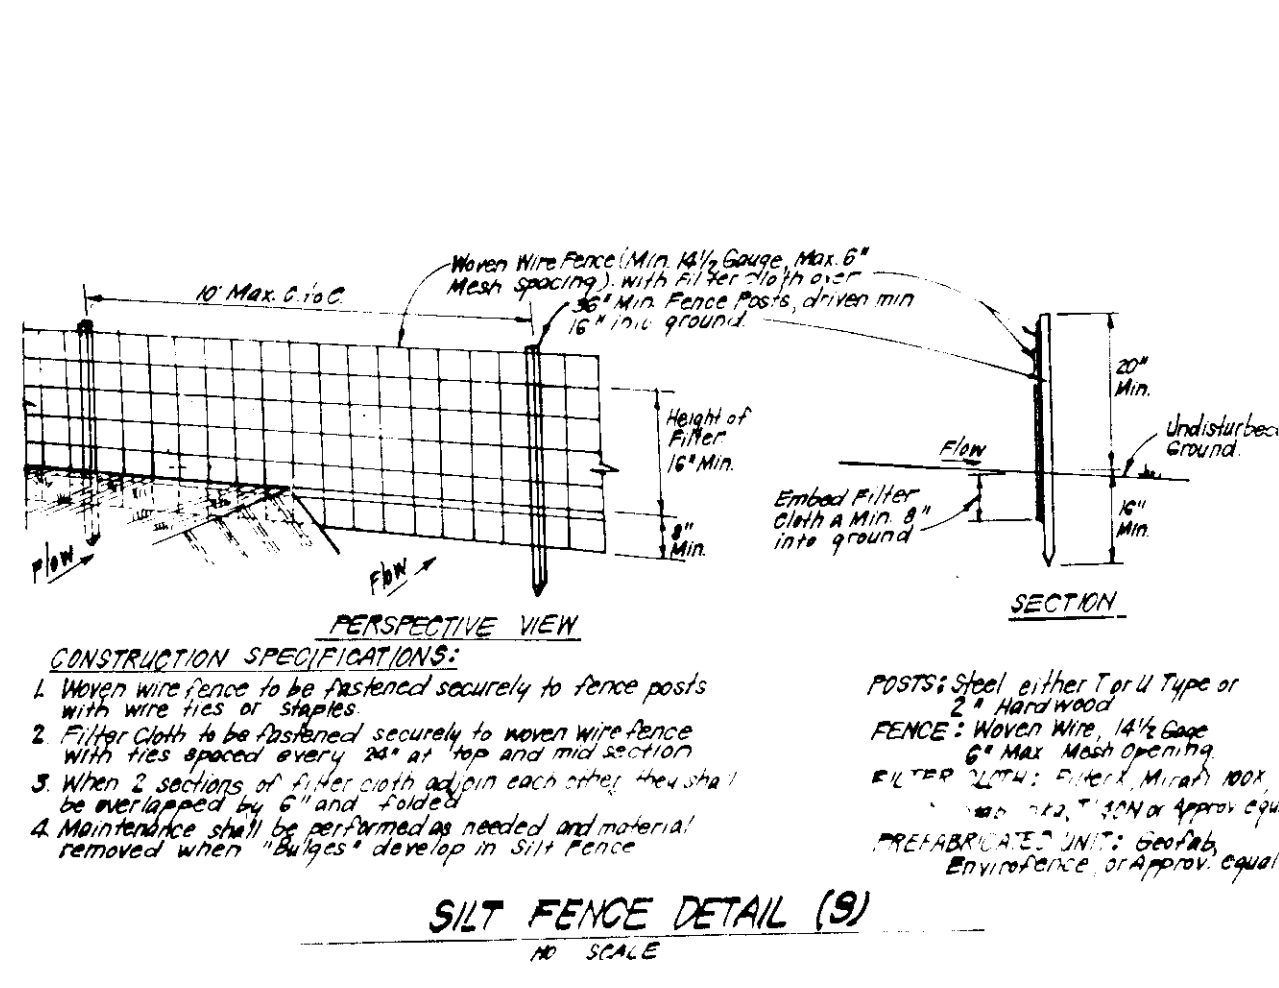 Woven Wire Fence (Min. 14½ Gauge, Max. 6"
Mesh spacing) with Filter Cloth over
36" Min. Fence Posts, driven min
16" into ground.
10' Max. C. to C.
Height of
Filter
16" Min.
8"
Min.
Flow
Flow
PERSPECTIVE VIEW
20"
Min.
Undisturbed
Ground.
Flow
Embed Filter
Cloth A Min. 8"
into ground
16"
Min.
SECTION
CONSTRUCTION SPECIFICATIONS:
1. Woven wire fence to be fastened securely to fence posts
with wire ties or staples.
2. Filter Cloth to be fastened securely to woven wire fence
with ties spaced every 24" at top and mid section
3. When 2 sections of filter cloth adjoin each other they shall
be overlapped by 6" and folded
4. Maintenance shall be performed as needed and material
removed when "Bulges" develop in Silt Fence
POSTS: Steel either T or U Type or
2" Hardwood
FENCE: Woven Wire, 14½ Gage
6" Max Mesh Opening
FILTER CLOTH: Filter X, Mirafi 100X,
or Approv equ
PREFABRICATED UNIT: Geofab,
Envirofence, or Approv. equal
SILT FENCE DETAIL (S)
NO SCALE